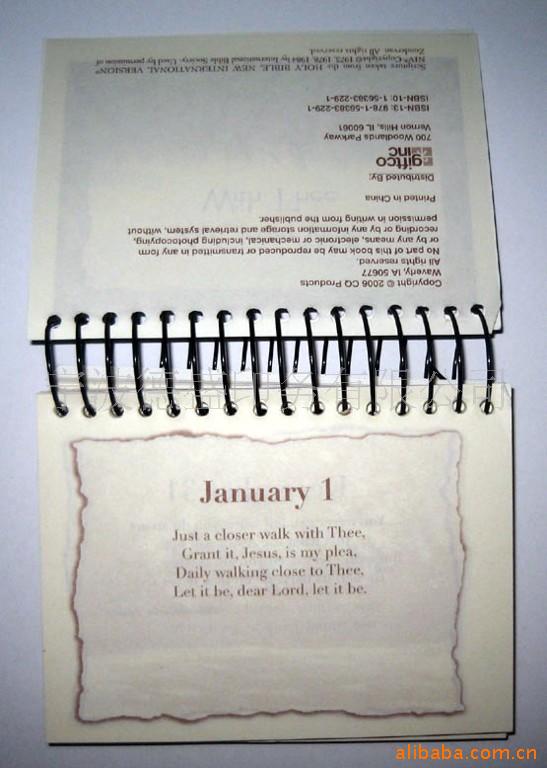 Copyright © 2006 CQ Products
Waverly, IA 50677
All rights reserved.
No part of this book may be reproduced or transmitted in any form
or by any means, electronic or mechanical, including photocopying,
recording or by any information storage and retrieval system, without
permission in writing from the publisher.
Printed in China
Distributed By:
giftco
inc
700 Woodlands Parkway
Vernon Hills, IL 60061
ISBN-13: 978-1-56383-229-1
ISBN-10: 1-56383-229-1
Scripture taken from the HOLY BIBLE, NEW INTERNATIONAL VERSION®
NIV® Copyright© 1973, 1978, 1984 by International Bible Society. Used by permission of
Zondervan. All rights reserved.
With Thee
印务有限公司
January 1
Just a closer walk with Thee,
Grant it, Jesus, is my plea,
Daily walking close to Thee,
Let it be, dear Lord, let it be.
alibaba.com.cn